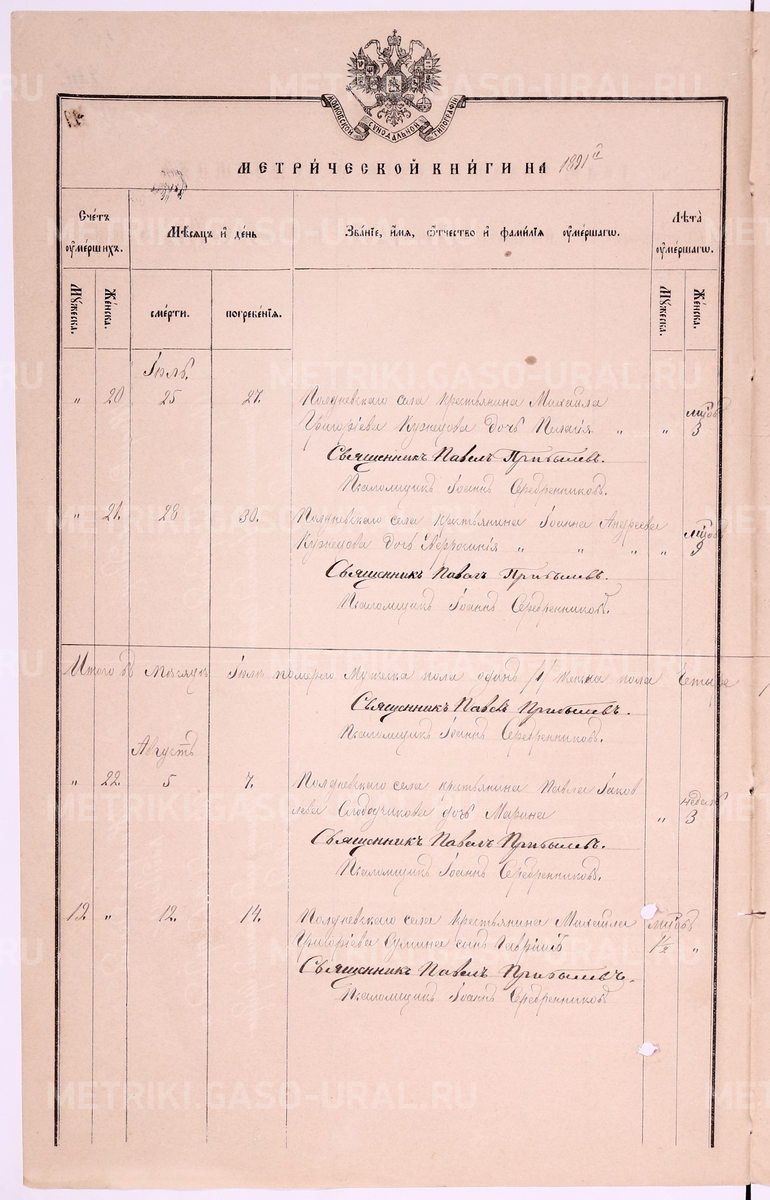 МОСКОВСКОЙ СѴНОДАЛЬНОЙ ТИПОГРАФІИ
МЕТРИ́ЧЕСКОЙ КНИ́ГИ НА 1891 й
Сче́тъ ᲂу҆ме́ршихъ.
Мѣ́сѧцъ и҆ де́нь
Зва́нїе, и҆́мѧ, ѻ҆́тчество и҆ фами́лїѧ ᲂу҆ме́ршагѡ.
Лѣ́та ᲂу҆ме́ршагѡ.
Мꙋ́жеска.
Же́нска.
сме́рти.
погребе́нїѧ.
Мꙋ́жеска.
Же́нска.
Іюль.
" 20 25 27. Полдневскаго села крестьянина Михаила
Григоріева Кузнецова дочь Пелагія " " мѣсяцовъ 3
Священникъ Павелъ Прибылевъ.
Псаломщикъ Іоаннъ Серебренниковъ.
" 21. 28 30. Полдневскаго села крестьянина Іоанна Андреева
Кузнецова дочь " " " " мѣсяцовъ 9
Священникъ Павелъ Прибылевъ.
Псаломщикъ Іоаннъ Серебренниковъ.
Итого въ мѣсяцѣ Іюлѣ померло мужеска пола одинъ /1/ женска пола четыре
Священникъ Павелъ Прибылевъ.
Псаломщикъ Іоаннъ Серебренниковъ.
Августъ
" 22. 5 7. Полдневскаго села крестьянина Павла Іаков
лева дочь Марина " недѣль 3
Священникъ Павелъ Прибылевъ.
Псаломщикъ Іоаннъ Серебренниковъ.
12. " 12. 14. Полдневскаго села крестьянина Михаила мѣсяцовъ
Григоріева Сумина сынъ Гавріилъ 1½ "
Священникъ Павелъ Прибылевъ.
Псаломщикъ Іоаннъ Серебренниковъ
METRIKI.GASO-URAL.RU